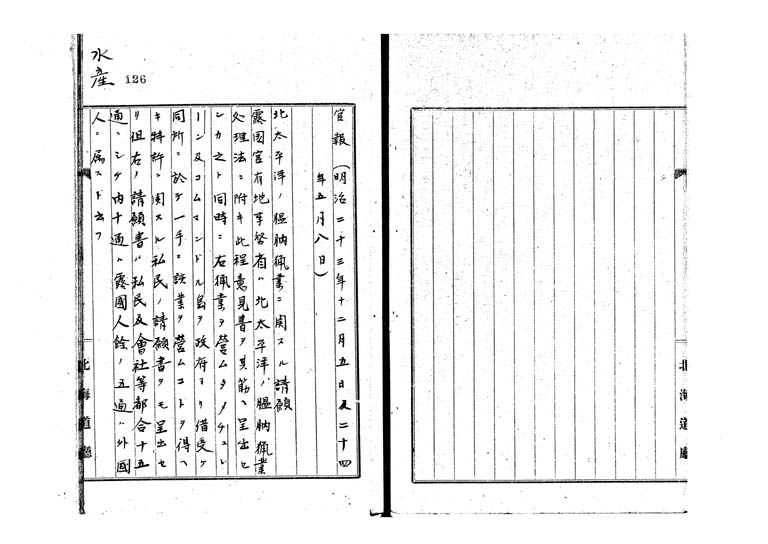 水産
126
官報(明治二十三年十二月五日及二十四
年五月八日)
北太平洋ノ膃肭猟業ニ関スル請願
露国官有地事務省ハ北太平洋ノ膃肭猟業
処理法ニ附キ此程意見書ヲ其筋ヘ呈出セ
シカ之ト同時ニ右猟業ヲ営ムタメチュレ
ーン及コムマンドル島ヲ政府ヨリ借受ケ
同所ニ於テ一手ニ該業ヲ営ムコトヲ得ヘ
キ特許ニ関スル私民ノ請願書ヲモ呈出セ
リ但右ノ請願書ハ私民及會社等都合十五
通ニシテ内十通ハ露國人餘ノ五通ハ外國
人ニ属スト云フ
北海道廳
北海道廳